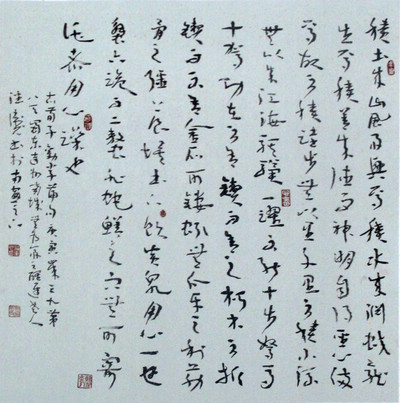 積土成山風雨興焉積水成淵蛟龍
生焉積善成德而神明自得聖心備
焉故不積跬步無以至千里不積小流
無以成江海騏驥一躍不能十步駑馬
十駕功在不舍鍥而舍之朽木不折
鍥而不舍金石可鏤螾無爪牙之利筋
骨之強上食埃土下飲黃泉用心一也
蟹六跪而二螯非蛇鱓之穴無可寄
托者用心躁也
荀子勸學篇句庚寅